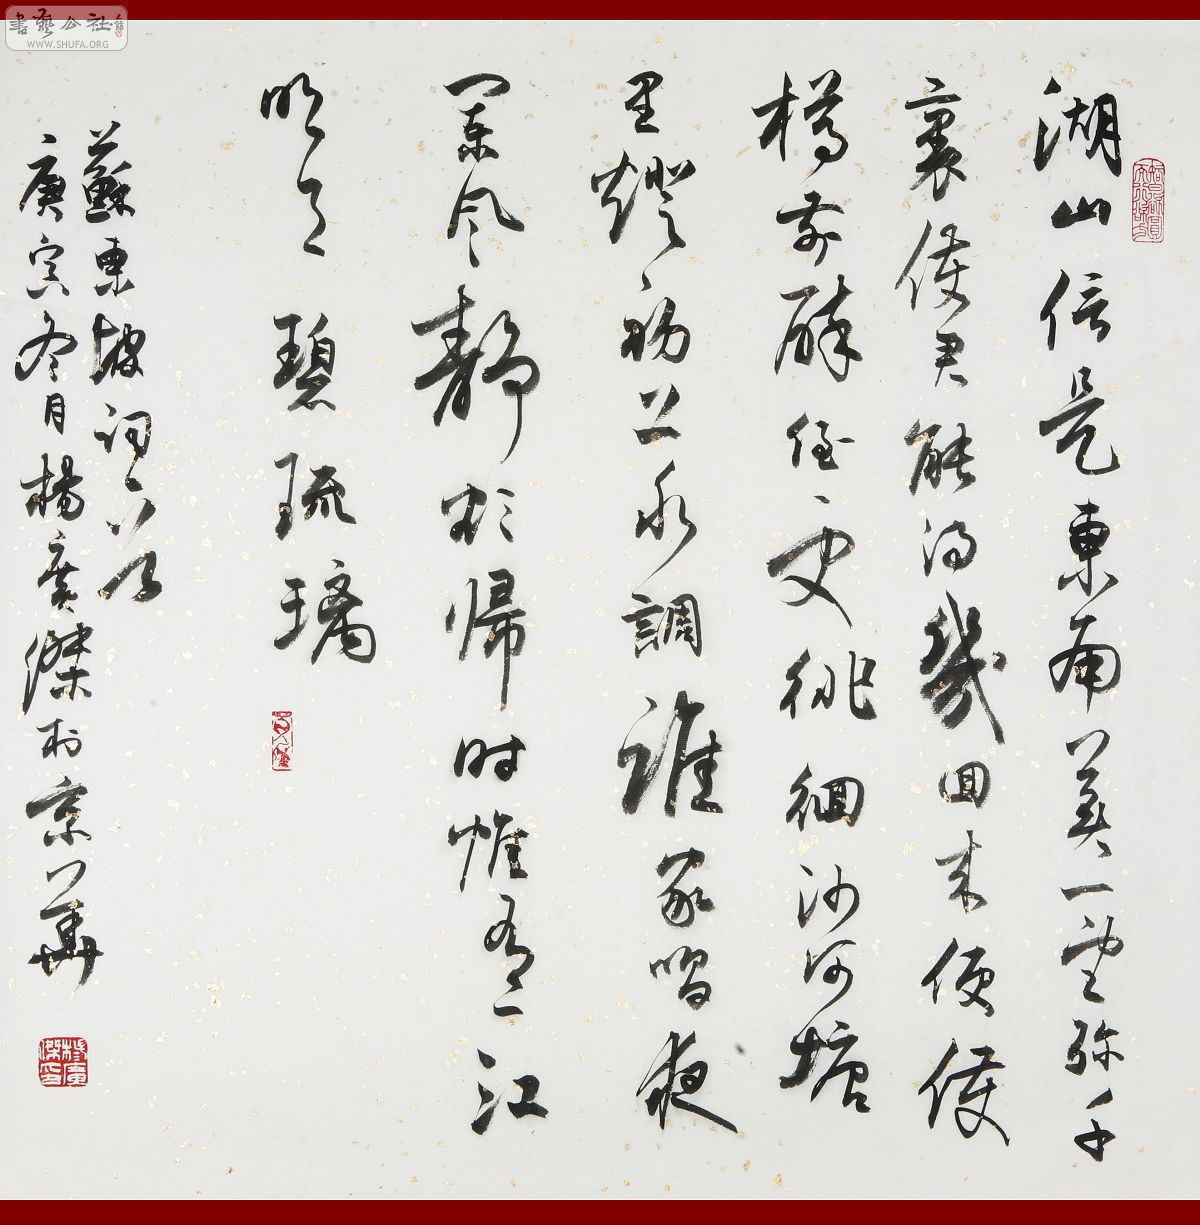 書藝公社
WWW.SHUFA.ORG
湖山信是東南美一望弥千
裏使君能得幾回来便使
樽前醉倒更徘徊沙河塘
里燈初上水調誰家唱夜
闌风靜欲帰时惟有一江
明月碧琉璃
蘇東坡詞一首
庚寅冬月楊廣傑於京華
楊廣傑印